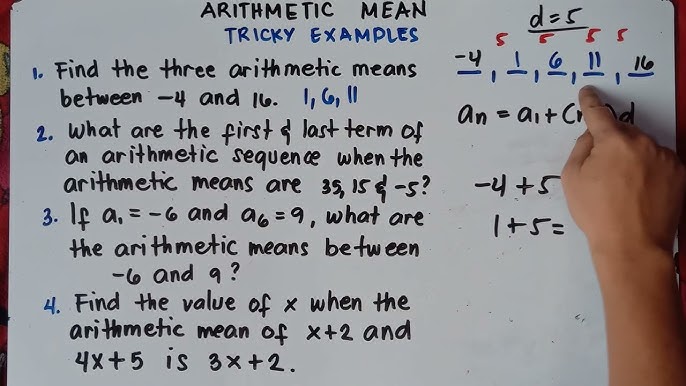 ARITHMETIC MEAN
TRICKY EXAMPLES
1. Find the three arithmetic means
between -4 and 16. 1, 6, 11
2. What are the first & last term of
an arithmetic sequence when the
arithmetic means are 35, 15 & -5?
3. If a₁ = -6 and a₆ = 9, what are
the arithmetic means between
-6 and 9?
4. Find the value of x when the
arithmetic mean of x+2 and
4x+5 is 3x+2.
d=5
5 5 5 5
-4, 1, 6, 11, 16
an = a₁ + ( d
-4+5
1+5=